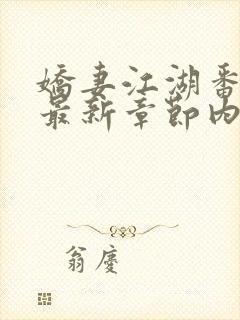 嬌妻江湖番
最新章節內
翁慶